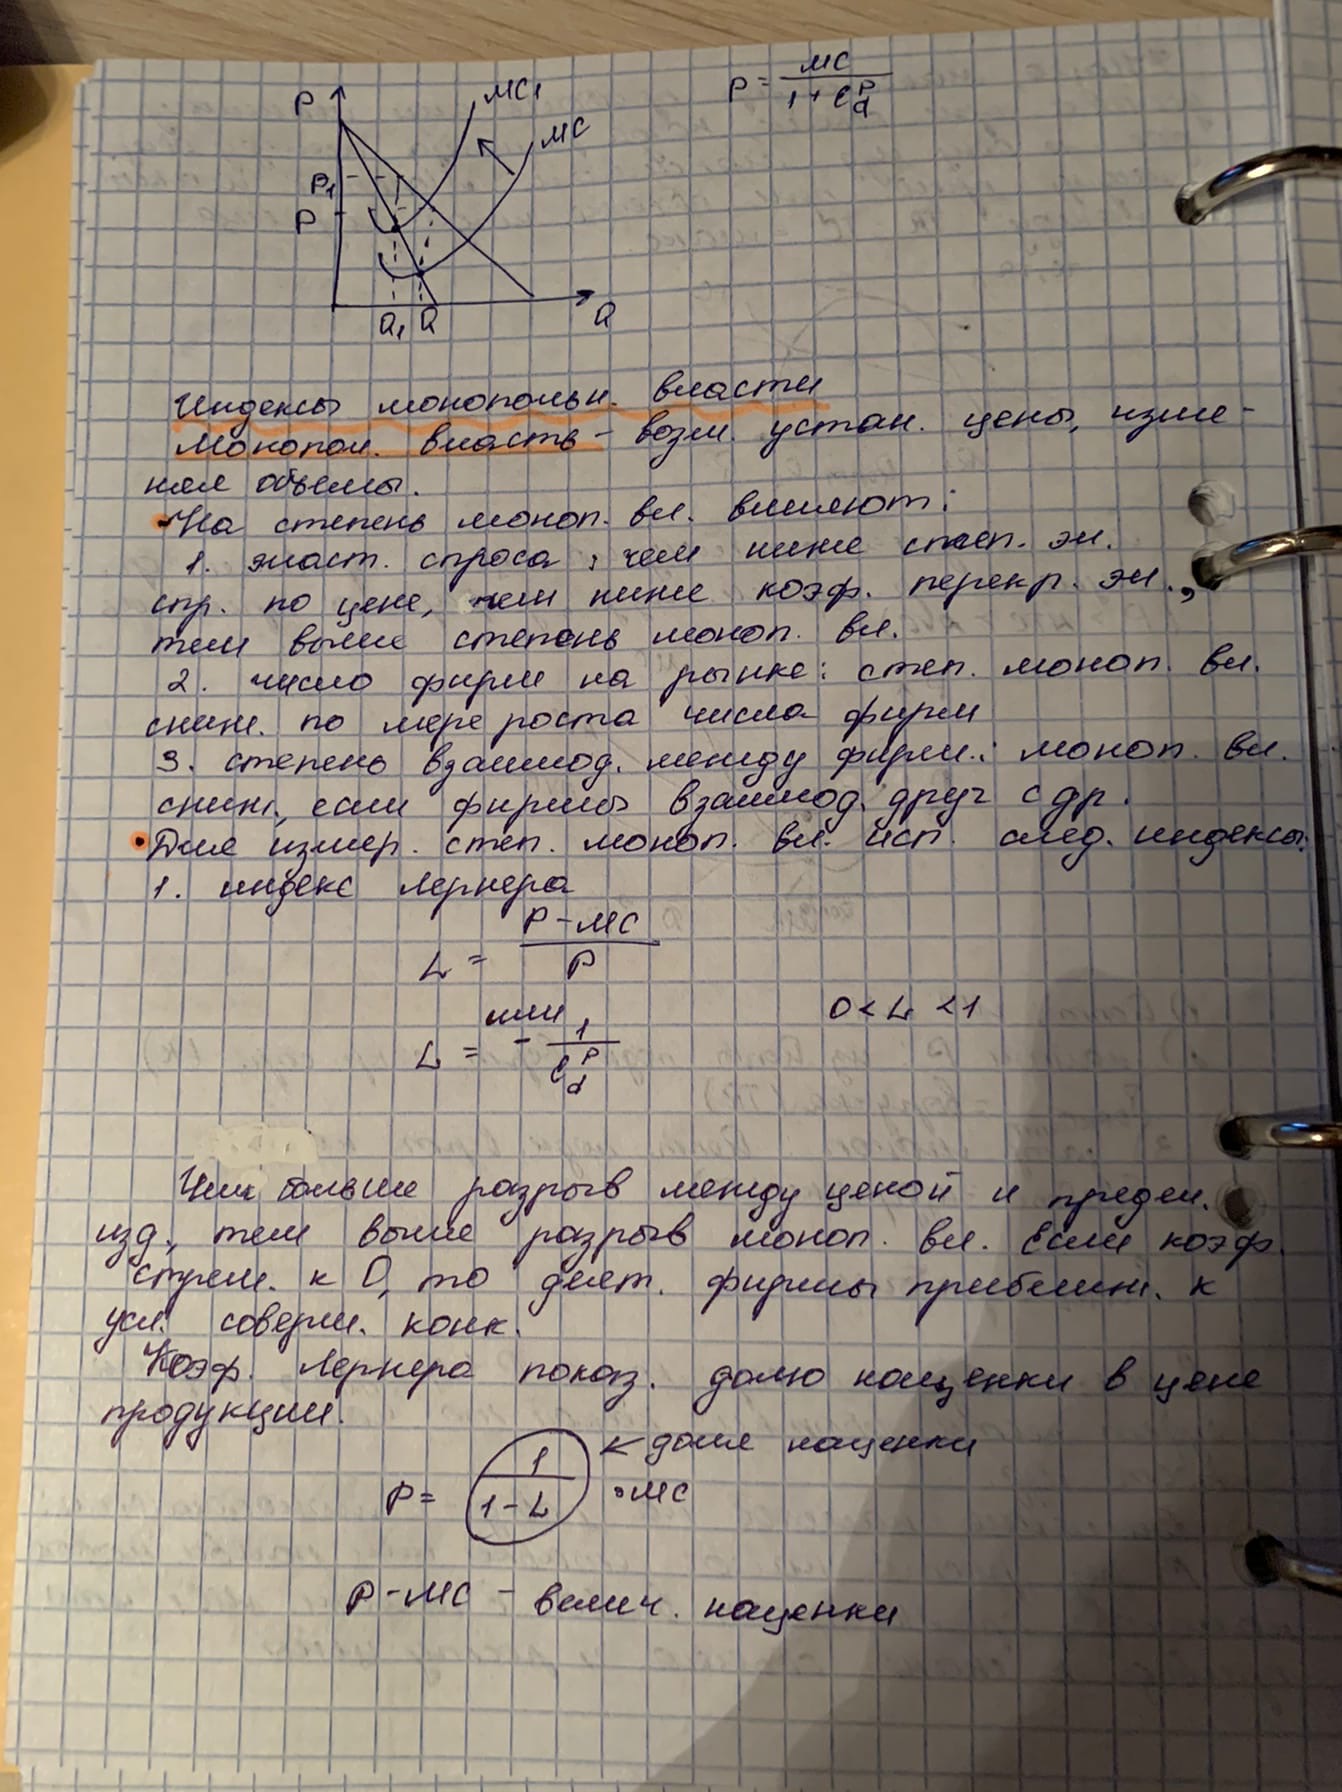 P
MC₁
MC
P₁
P
Q₁ Q
Q
P = MC / 1 + e_d^P
Индексы монопольн. власти
Монопол. власть - возм. устан. цены, изме-
няя объемы.
• На степень моноп. вл. влияют:
1. эласт. спроса: чем ниже степ. эл.
спр. по цене, чем ниже коэф. перекр. эл.,
тем выше степень моноп. вл.
2. число фирм на рынке: степ. моноп. вл.
сниж. по мере роста числа фирм
3. степень взаимод. между фирм.: моноп. вл.
сниж., если фирмы взаимод. друг с др.
• Для измер. степ. моноп. вл. исп. след. индексы:
1. индекс Лернера
L = P-MC / P
или
L = - 1 / e_d^P
0 < L < 1
Чем больше разрыв между ценой и предел.
изд., тем выше разрыв моноп. вл. Если коэф.
стрем. к 0, то деят. фирмы приближ. к
усл. соверш. конк.
Коэф. Лернера показ. долю наценки в цене
продукции.
P = 1 / 1-L · MC
← доля наценки
P-MC - велич. наценки